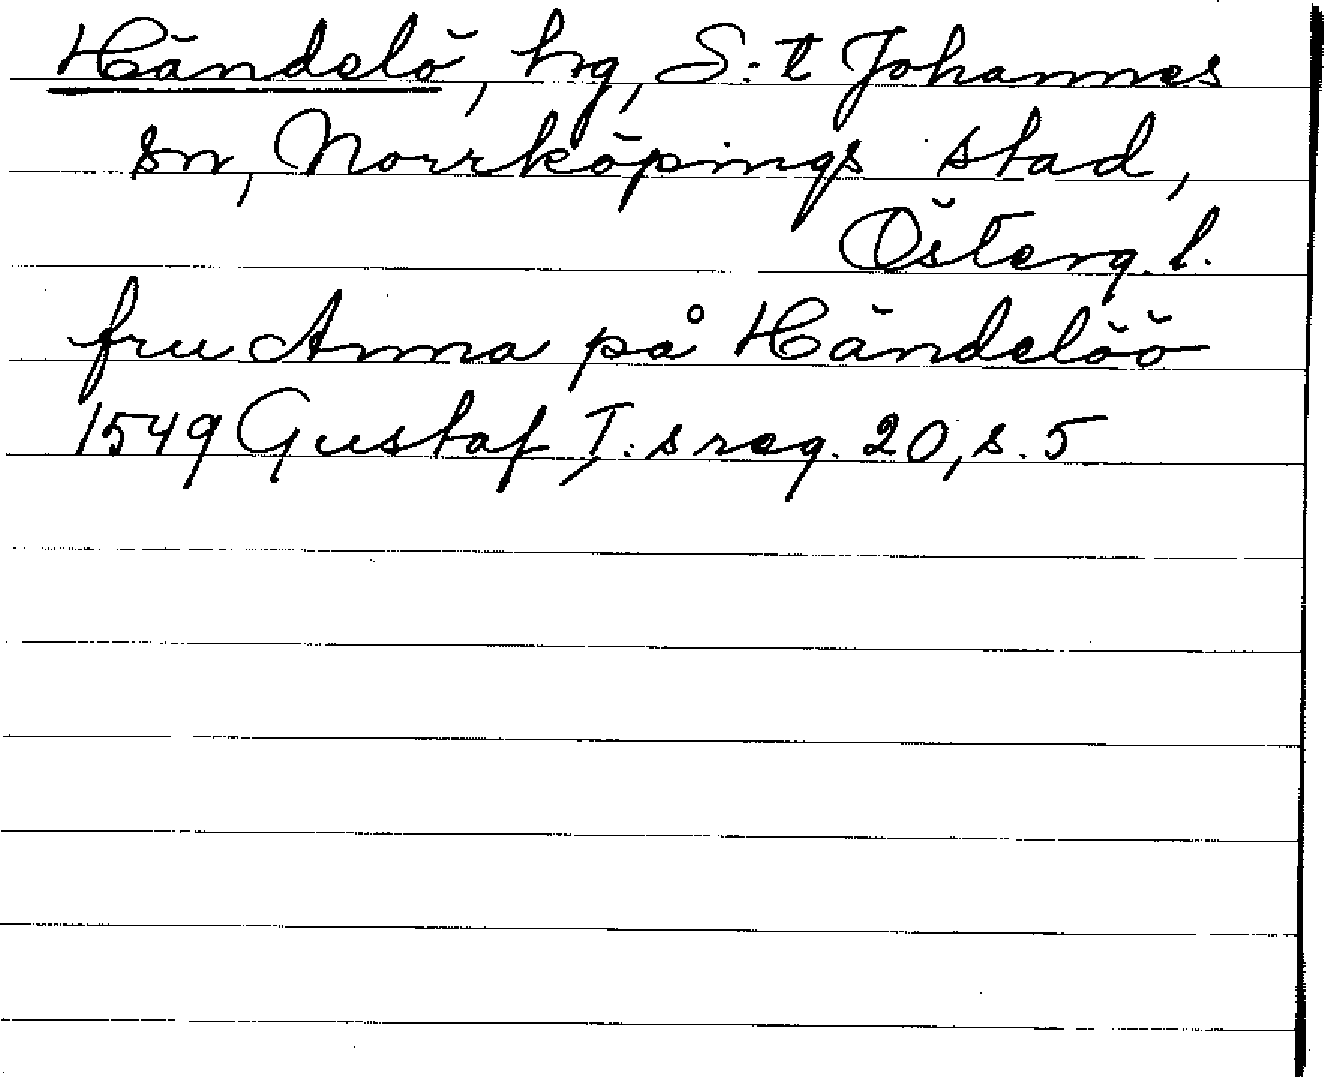 Händelö, hg, S:t Johannes
sn, Norrköpings stad,
Österg. l.
fru Anna på Händelöö
1549 Gustaf I:s reg. 20, s. 5